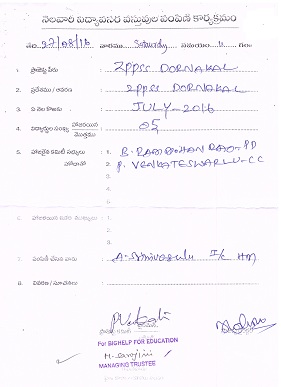 నెలవారి నిత్యావసర వస్తువుల పంపిణీ కార్యక్రమం
తేది. 27/08/16 వారము Saturday సమయం
1. ప్రాజెక్టు పేరు ZPPSS DORNAKAL
2. ప్రదేశము / ఆవరణ ZPPSS DORNAKAL
3. ఏ నెల కొరకు JULY-2016
4. విద్యార్థుల సంఖ్య హాజరయిన మొత్తము 05
5. హాజరైన కమిటీ సభ్యులు 1. B. RAM MOHAN RAO-PD
హోదాతో 2. P. VENKATESWARLU-CC
3.
6. హాజరయిన 1.
2.
3.
7. పంపిణీ చేసిన వారు A. Srinivasulu I/c HM
8. వివరణ / సూచనలు
For BIGHELP FOR EDUCATION
M. Sarojini
MANAGING TRUSTEE